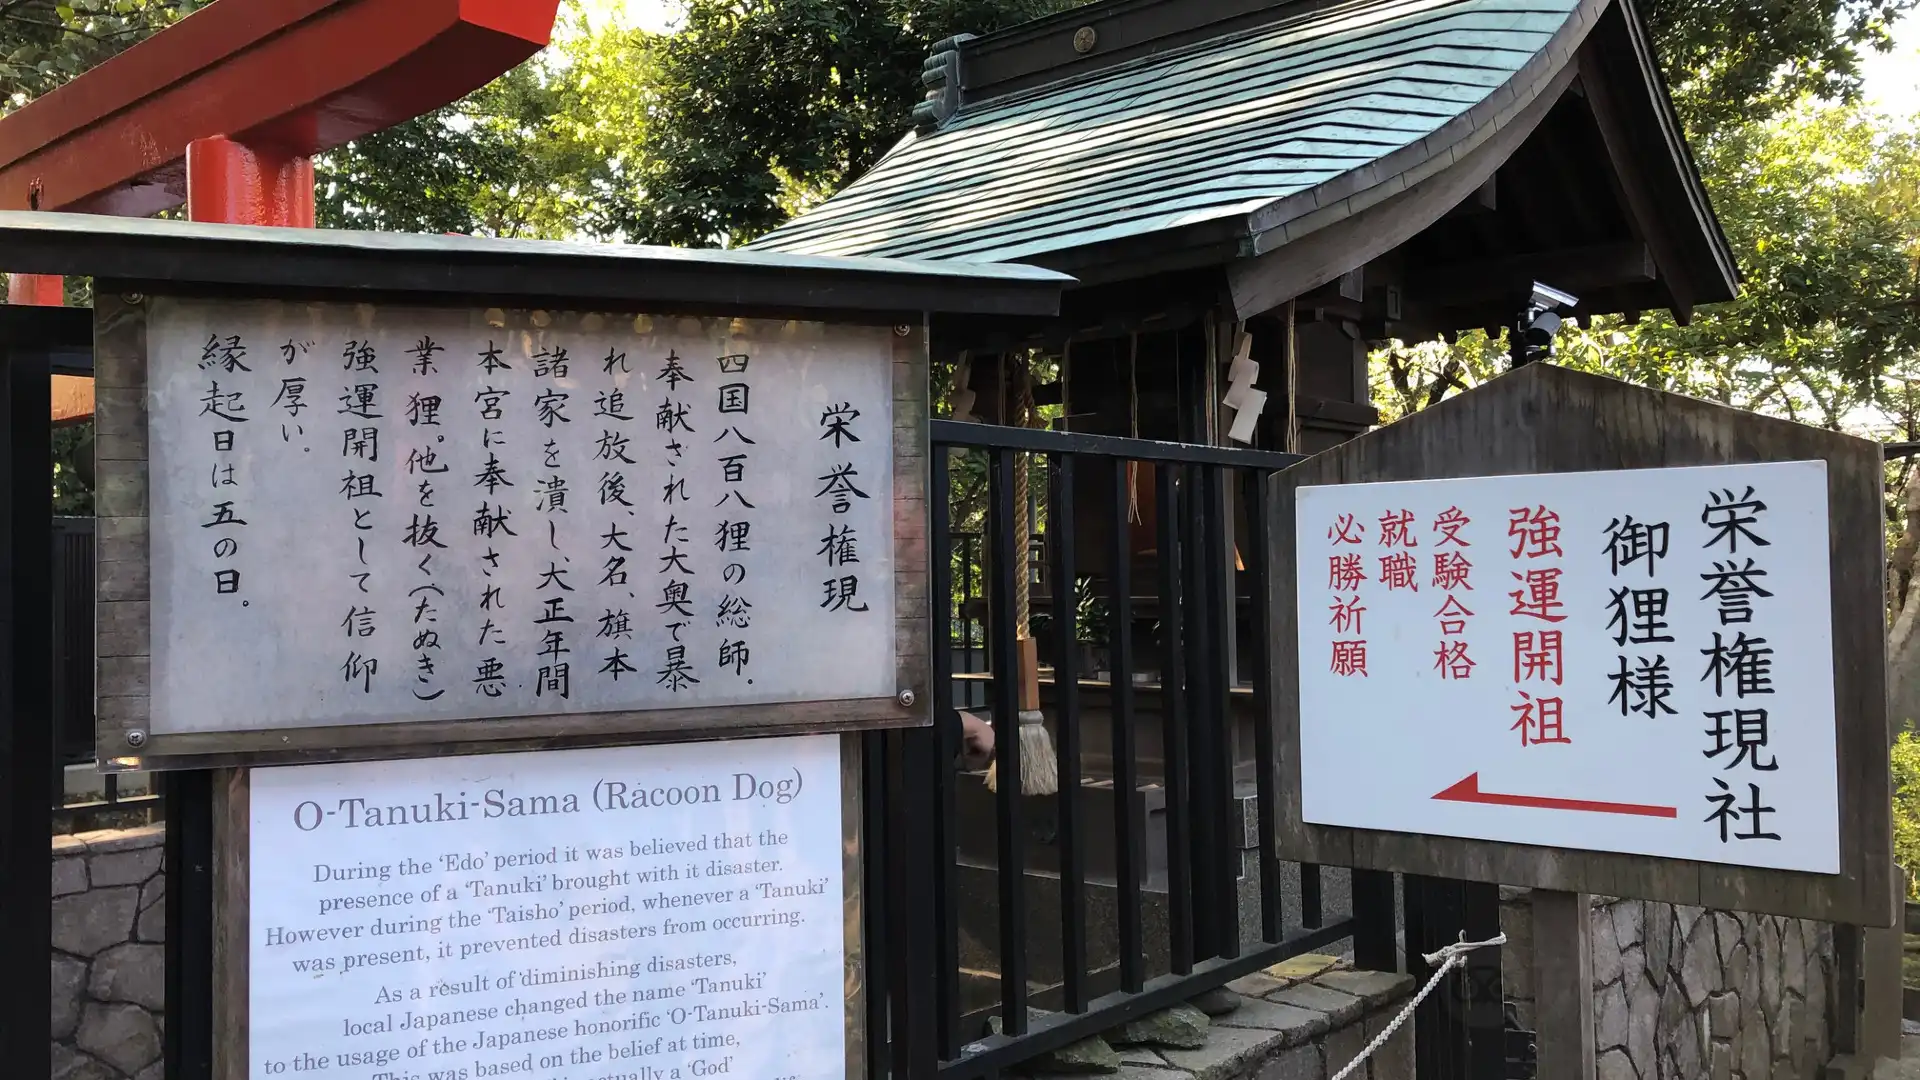 栄誉権現
四国八百八狸の総師.
奉献された大奥で暴
れ追放後、大名、旗本
諸家を潰し、大正年間
本宮に奉献された悪
業狸。他を抜く(たぬき)
強運開祖として信仰
が厚い.
縁起日は五の日。
O-Tanuki-Sama (Racoon Dog)
During the ‘Edo’ period it was believed that the
presence of a ‘Tanuki’ brought with it disaster.
However during the ‘Taisho’ period, whenever a ‘Tanuki’
was present, it prevented disasters from occurring.
As a result of diminishing disasters,
local Japanese changed the name ‘Tanuki’
to the usage of the Japanese honorific ‘O-Tanuki-Sama’.
This was based on the belief at time,
actually a ‘God’
栄誉権現社
御狸様
強運開祖
受験合格
就職
必勝祈願